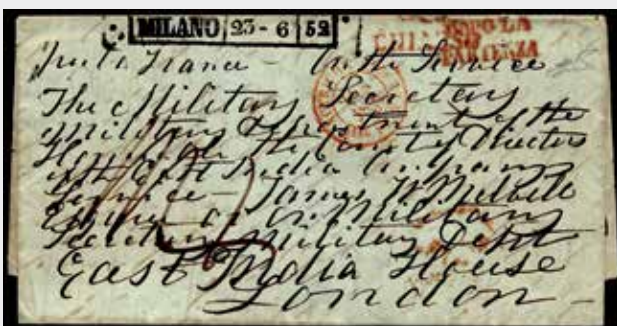 MILANO 23-6 52
DOPO LA
PARTENZA
France - On the Service
The Military Secretary
Military Department of the
Honorable The Court of Directors
of the East India Company's
Service - James
Military
Secretary Military Dept
East India House
London -